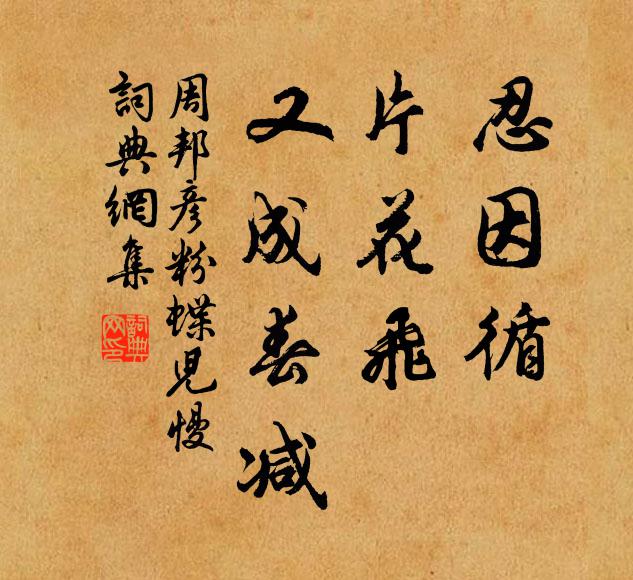 忍因循
片花飛
又成春减
周邦彦粉蝶児慢
詞典網集
詞典網印